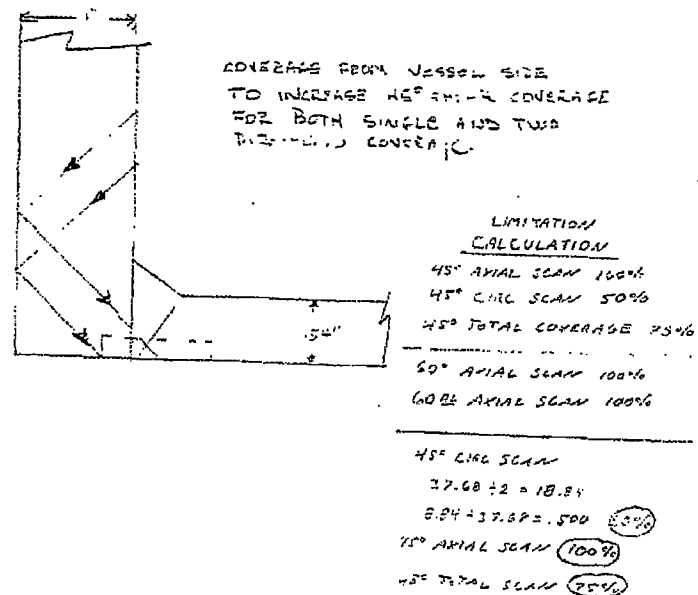 1"
COVERAGE FROM VESSEL SIDE
TO INCREASE 45° COVERAGE
FOR BOTH SINGLE AND TWO
.54"
LIMITATION
CALCULATION
45° AXIAL SCAN 100%
45° CIRC SCAN 50%
45° TOTAL COVERAGE 75%
60° AXIAL SCAN 100%
60RL AXIAL SCAN 100%
45° CIRC SCAN
37.68 ÷ 2 = 18.84
8.84 ÷ 37.68 = .500 50%
45° AXIAL SCAN 100%
45° TOTAL SCAN 75%